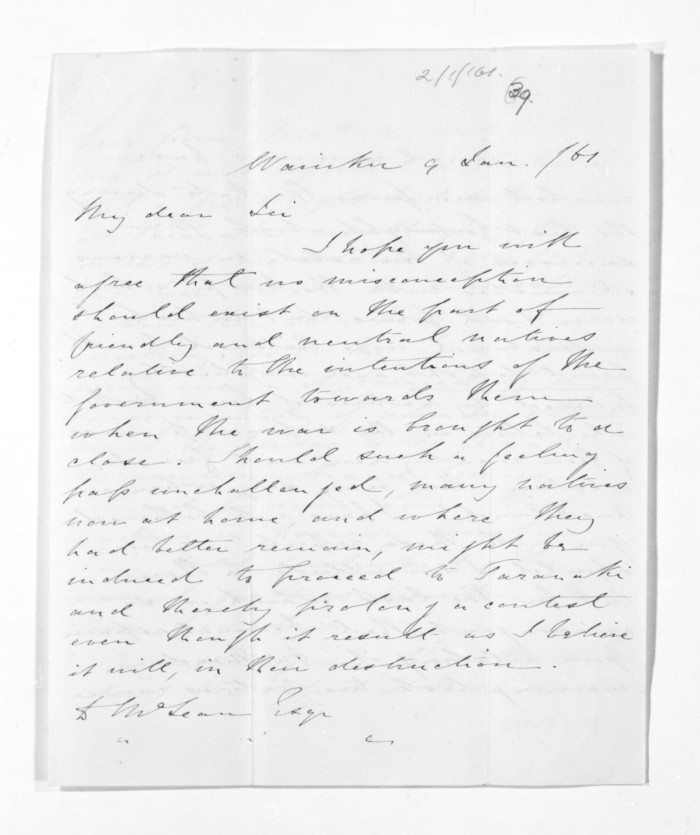 2/1/61.
39.
Waiuku 9 Jan. /61
My dear Sir
I hope you will
agree that no misconception
should exist on the part of
friendly and neutral natives
relative to the intentions of the
Government towards them
when the war is brought to a
close. Should such a feeling
pass unchallenged, many natives
now at home and where they
had better remain, might be
induced to proceed to Taranaki
and thereby prolong a contest
even though it result as I believe
it will, in their destruction.
D McLean Esqr